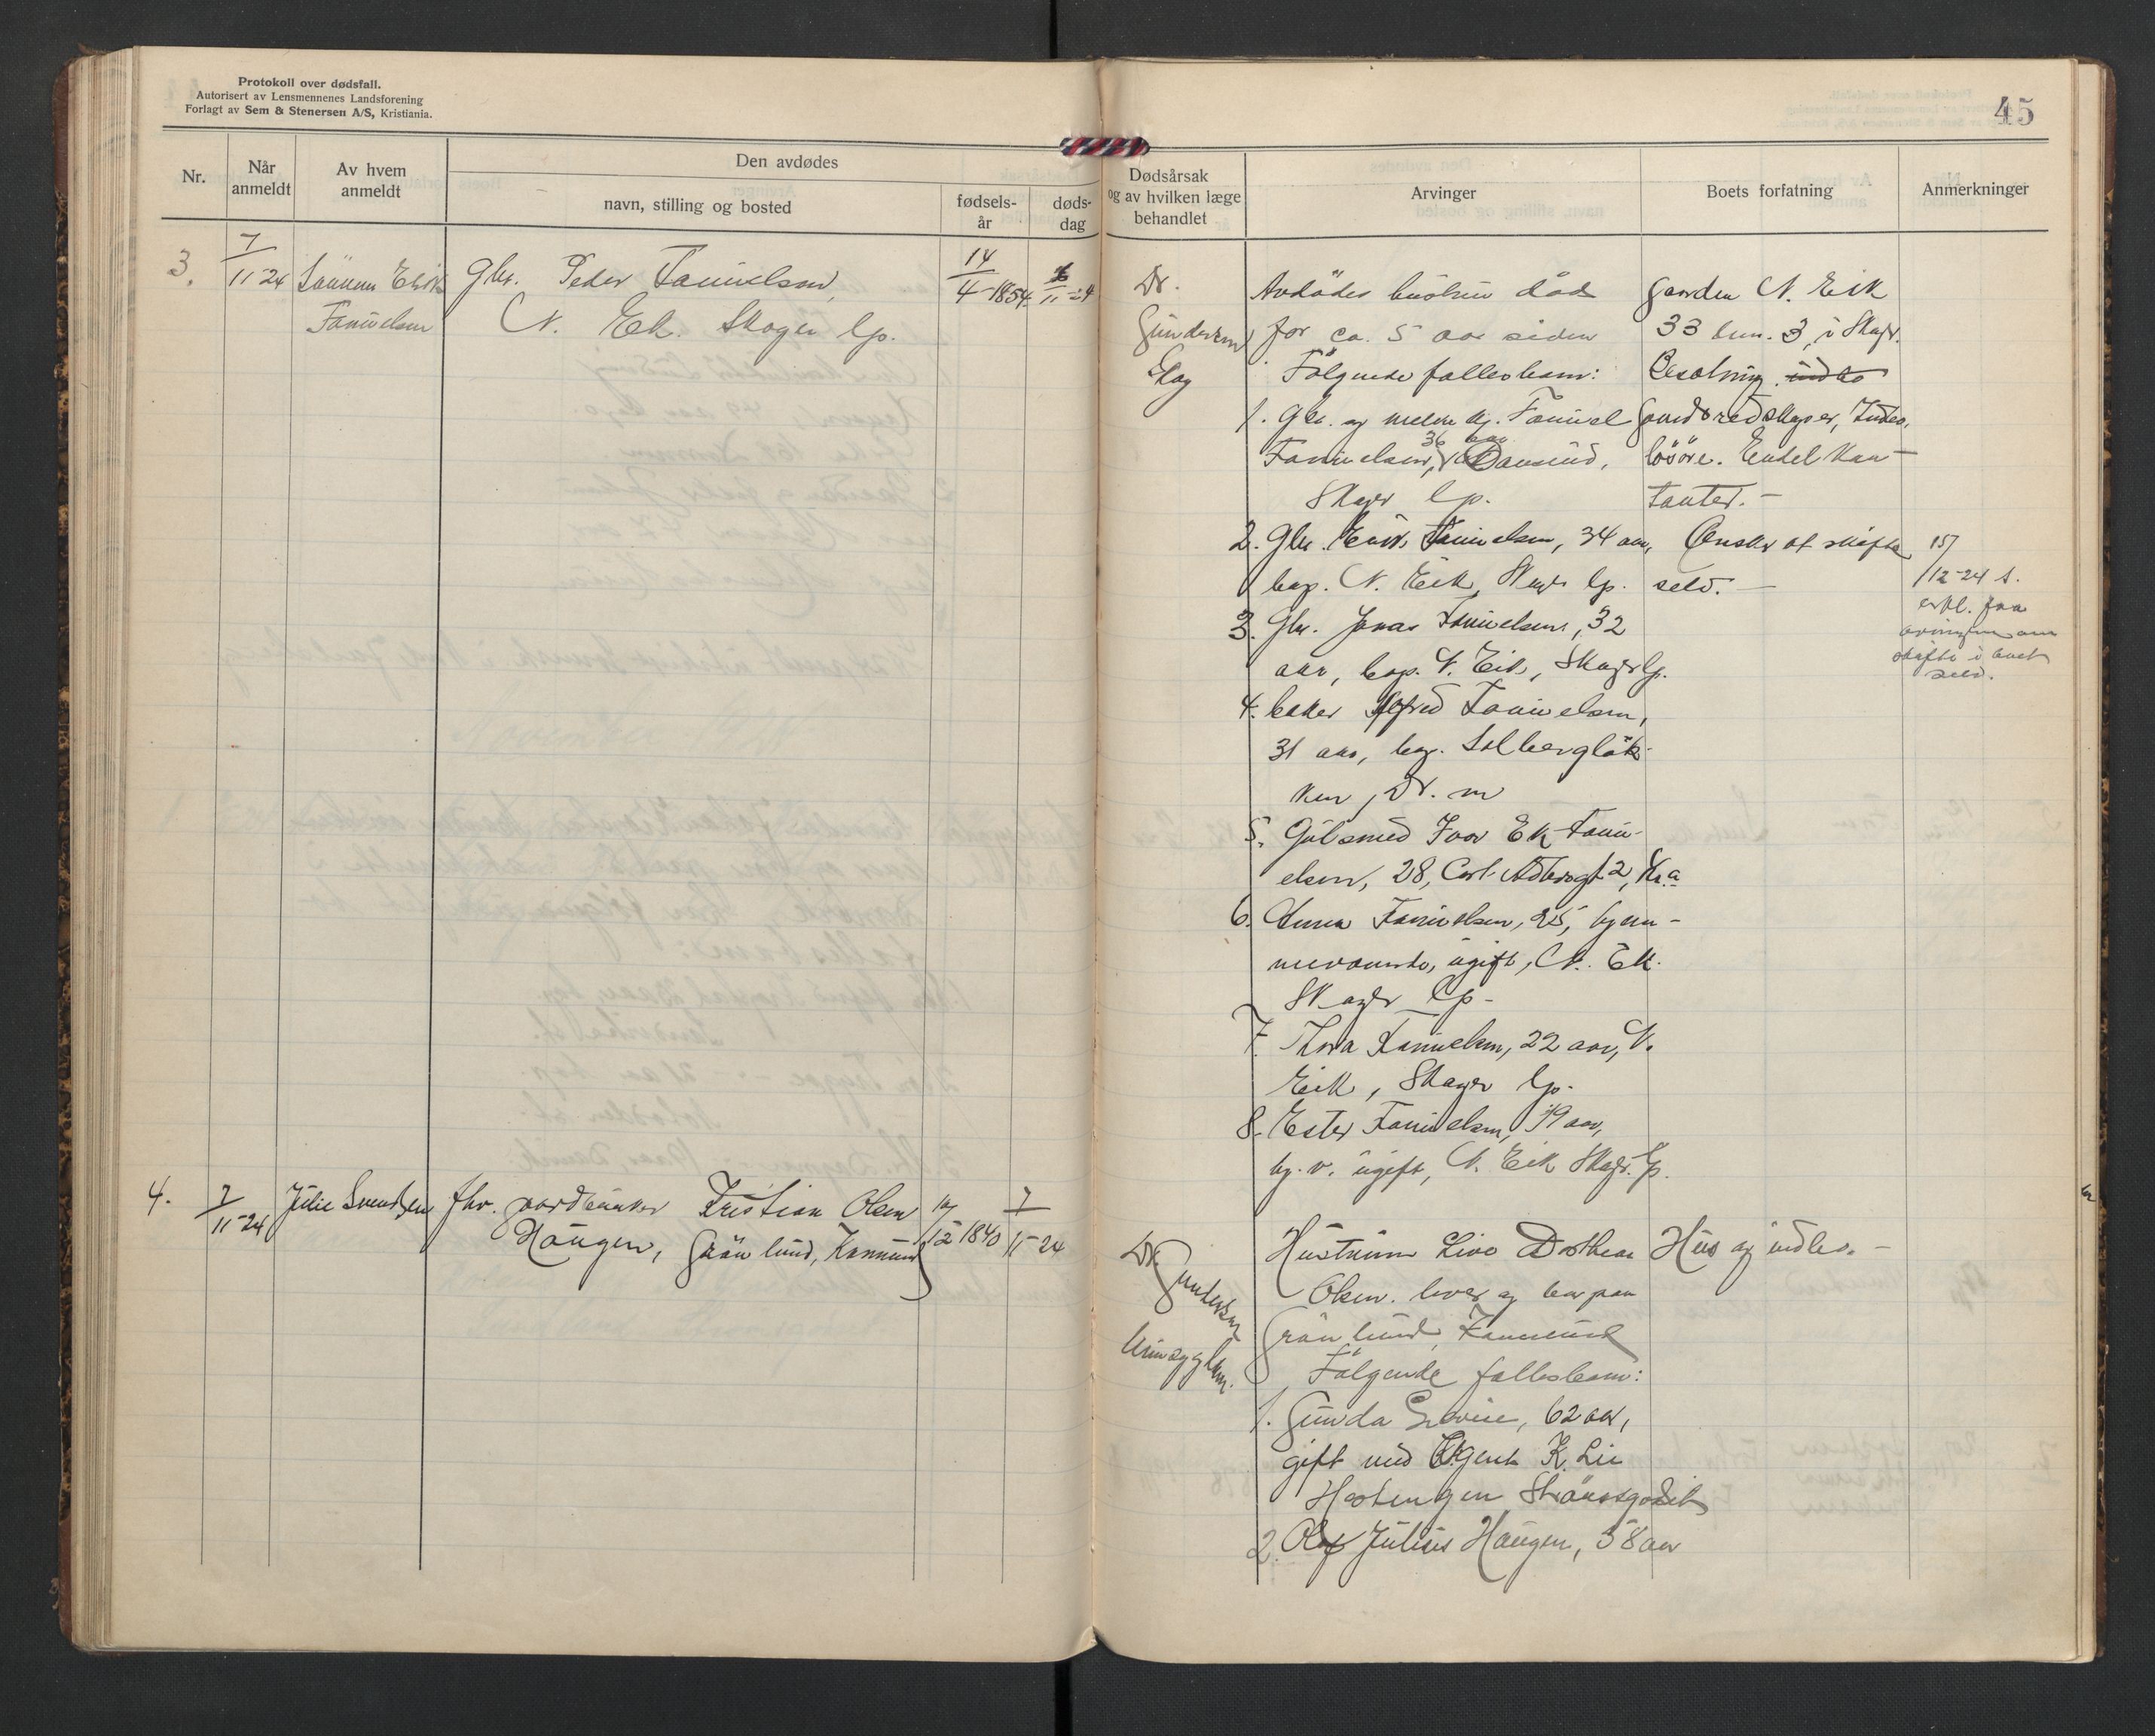 Protokoll over dødsfall.
Autorisert av Lensmennenes Landsforening
Forlagt av Sem & Stenersen A/S, Kristiania.
45
Nr.
Når anmeldt
Av hvem anmeldt
Den avdødes
navn, stilling og bosted
fødsels-år
døds-dag
Dødsårsak og av hvilken læge behandlet
Arvinger
Boets forfatning
Anmerkninger
3.
7/11-24
Sønnen Erik
Fanuelsen
Gbr. Peder Fanuelsen,
N. Ek. Skoger lp.
14/4-1854
6/11-24
Dr.
Gundersen
Skog
Avdødes hustru död
for ca. 5 aar siden
Følgende fellesbarn:
1. Gbr. og Fanuel
36 aar
Fanuelsen,
Skoger lp.
2. Gbr. Erik Fanuelsen, 34 aar,
bop. N. Eik, Skoger lp.
3. Gbr. Jonas Fanuelsen, 32
aar, bop. N. Eik, Skoger lp.
4. baker Alfred Fanuelsen,
31 aar, bop. Solbergløk-
ken, Dr. m
5. Gulsmed Ivar Ek Fanu-
elsen, 28, Carl 2, Kr.a
6. Anna Fanuelsen, 25, hjem-
meværende, ugift, N. Ek.
Skoger lp.
7. Thora Fanuelsen, 22 aar, N.
Eik, Skoger lp.
8. Ester Fanuelsen, 19 aar,
hj. v. ugift, N. Eik Skoger lp.
Gaarden N. Eik
33 brn. 3, i Skoger.
Besetning. indbo
Gaardsredskaper, Indbo,
løsøre. Endel kon-
tanter. -
Ønsker at skifte
selv. -
15/12-24 s.
erkl. fra
arvingerne om
skifte i boet
selv.
4.
7/11-24
Julie Svendsen
fhv. gardbruker Kristian Olsen
Haugen, Grønlund, Konnerud
10/12 1840
7/11-24
Dr.
Gundersen
Hustruen Live Dorthea
Olsen. lever og bor paa
Grønlund, Konnerud
Følgende fellesbarn:
1. Gunda Lovise, 62 aar,
gift med Agent K. Lie
Hotengen Strømsgodset
2. Olaf Julius Haugen, 58 aar
Hus og indbo. -